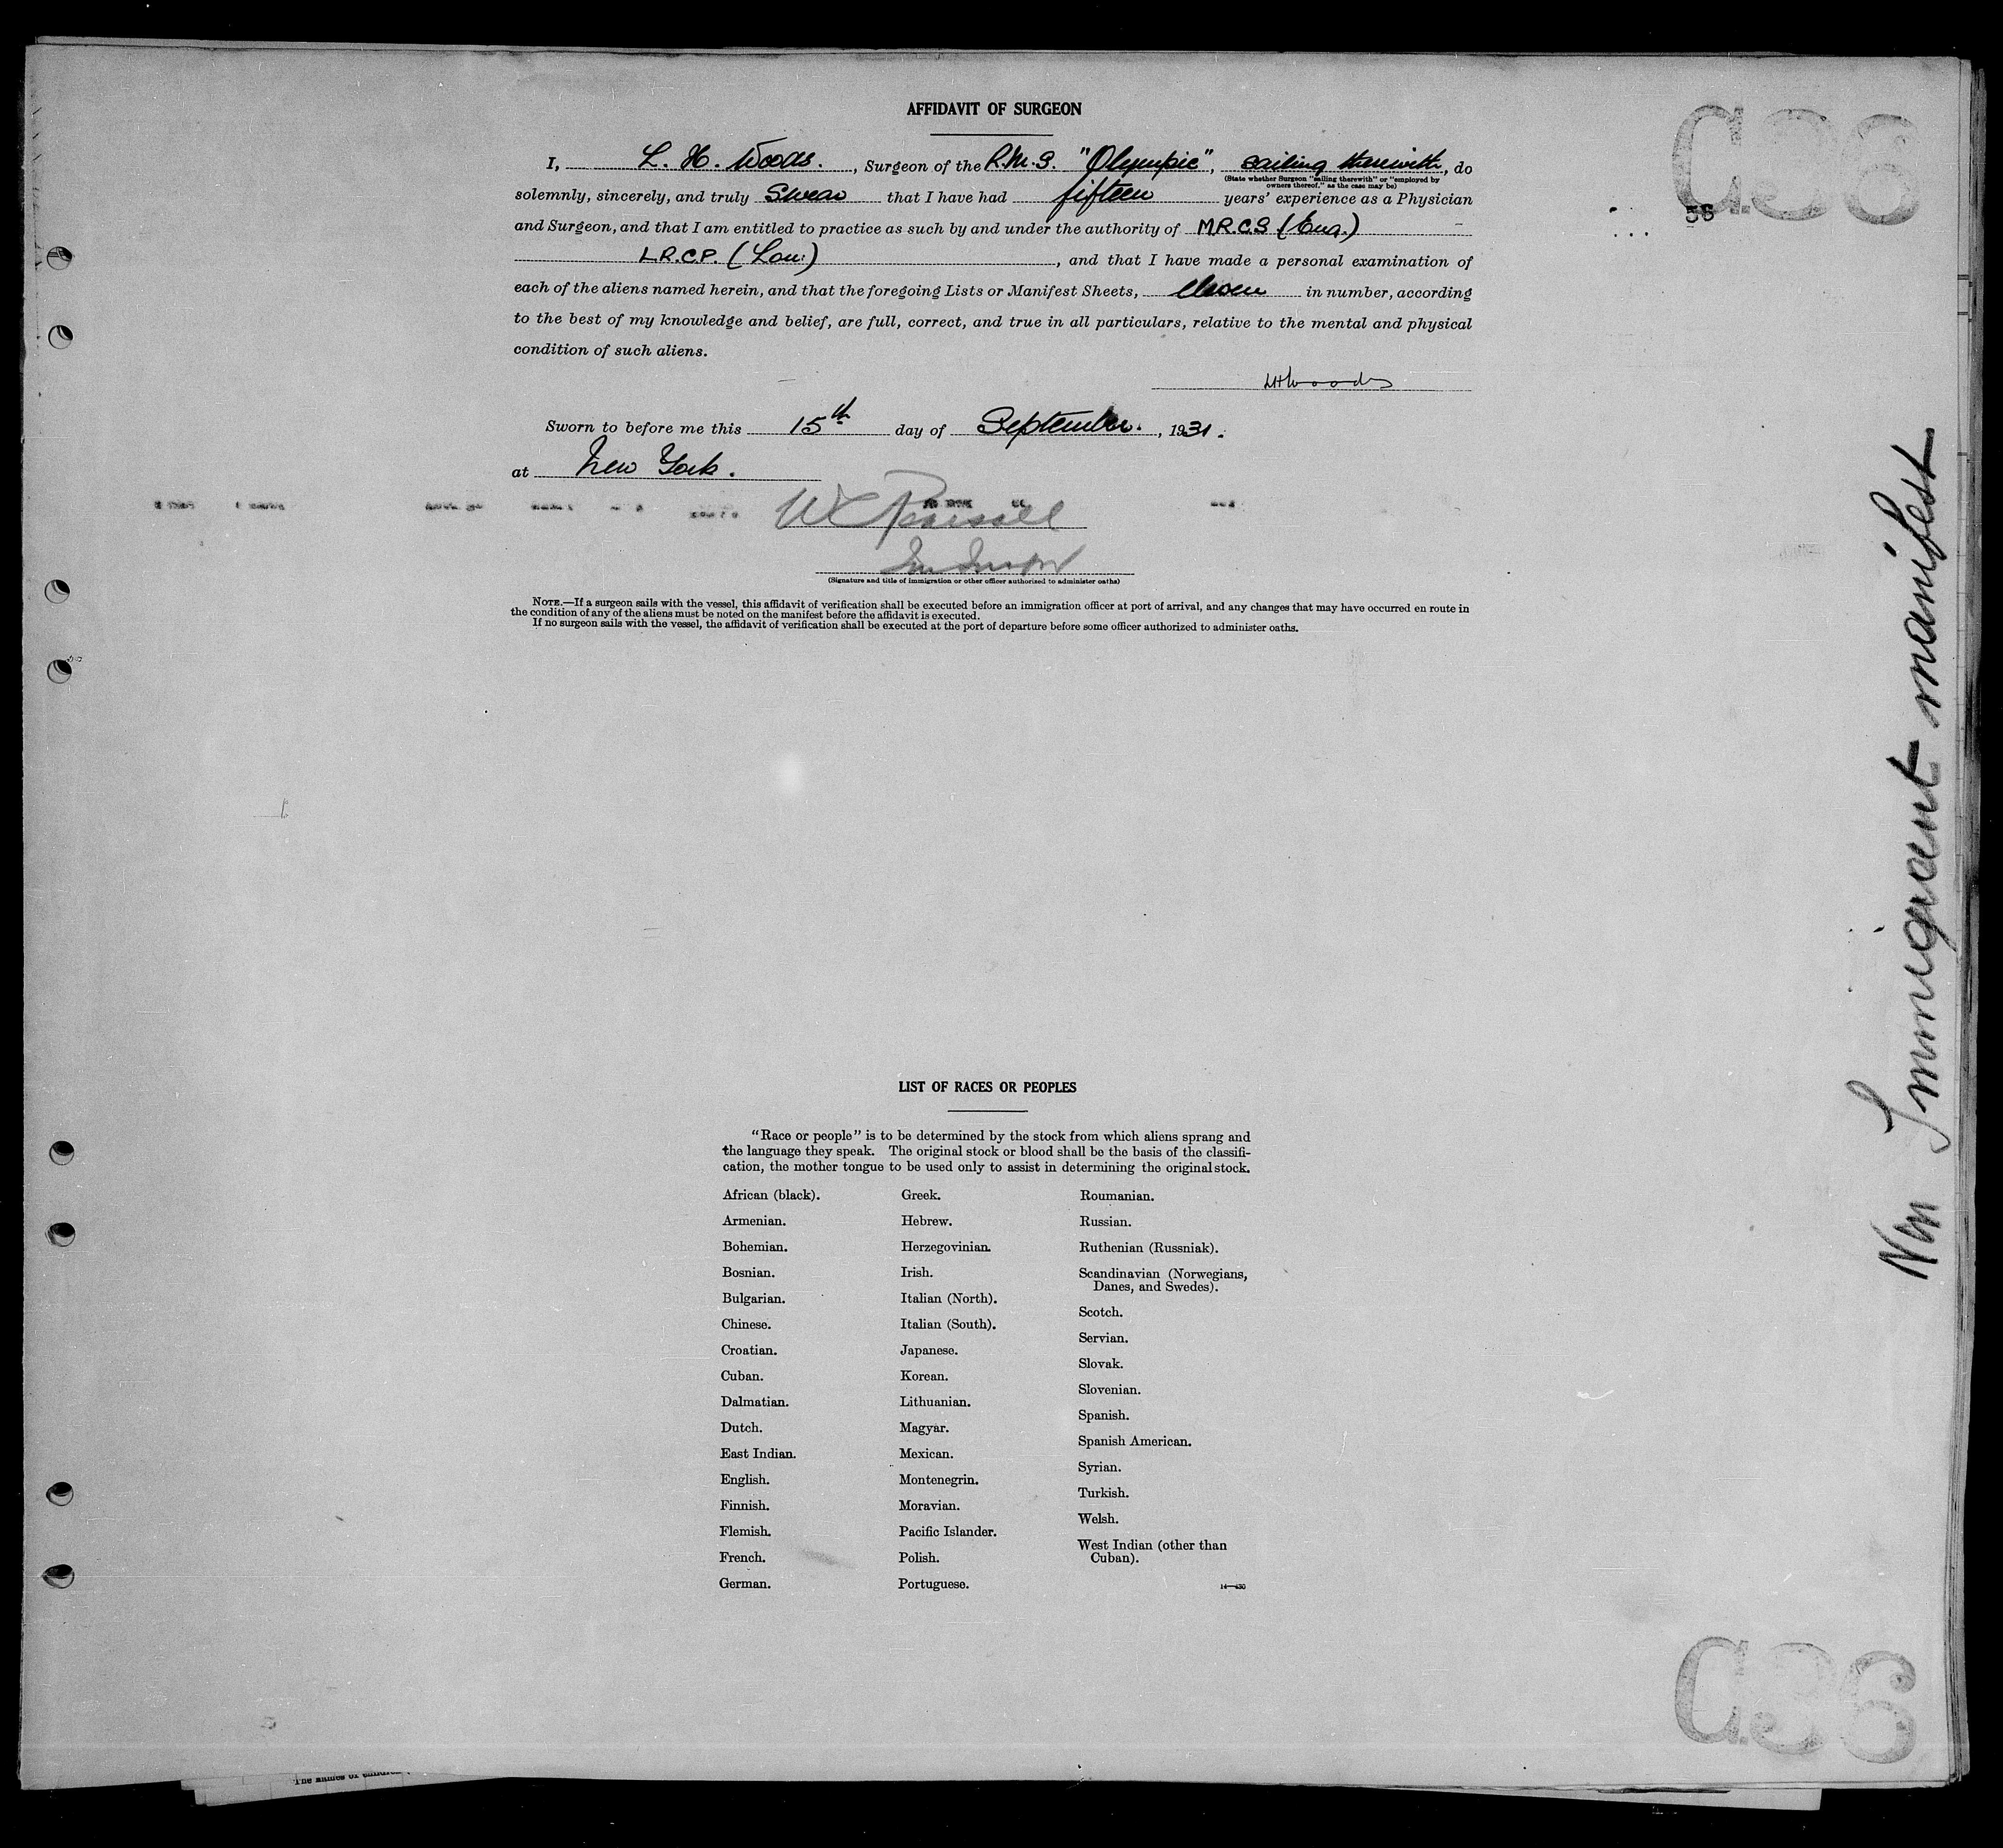 AFFIDAVIT OF SURGEON
I, L. H. Woods. , Surgeon of the R.M.S. "Olympic", sailing therewith, do
(State whether Surgeon "sailing therewith" or "employed by
owners thereof," as the case may be)
solemnly, sincerely, and truly Swear that I have had fifteen years' experience as a Physician
and Surgeon, and that I am entitled to practice as such by and under the authority of M.R.C.S (Eng.)
L.R.C.P. (Lon:) , and that I have made a personal examination of
each of the aliens named herein, and that the foregoing Lists or Manifest Sheets, eleven in number, according
to the best of my knowledge and belief, are full, correct, and true in all particulars, relative to the mental and physical
condition of such aliens.
LHWoods
Sworn to before me this 15th day of September. , 1931.
at New York.
(Signature and title of immigration or other officer authorized to administer oaths)
NOTE.—If a surgeon sails with the vessel, this affidavit of verification shall be executed before an immigration officer at port of arrival, and any changes that may have occurred en route in
the condition of any of the aliens must be noted on the manifest before the affidavit is executed.
If no surgeon sails with the vessel, the affidavit of verification shall be executed at the port of departure before some officer authorized to administer oaths.
56
Immigrant manifest
LIST OF RACES OR PEOPLES
"Race or people" is to be determined by the stock from which aliens sprang and
the language they speak. The original stock or blood shall be the basis of the classifi-
cation, the mother tongue to be used only to assist in determining the original stock.
African (black).
Armenian.
Bohemian.
Bosnian.
Bulgarian.
Chinese.
Croatian.
Cuban.
Dalmatian.
Dutch.
East Indian.
English.
Finnish.
Flemish.
French.
German.
Greek.
Hebrew.
Herzegovinian.
Irish.
Italian (North).
Italian (South).
Japanese.
Korean.
Lithuanian.
Magyar.
Mexican.
Montenegrin.
Moravian.
Pacific Islander.
Polish.
Portuguese.
Roumanian.
Russian.
Ruthenian (Russniak).
Scandinavian (Norwegians,
Danes, and Swedes).
Scotch.
Servian.
Slovak.
Slovenian.
Spanish.
Spanish American.
Syrian.
Turkish.
Welsh.
West Indian (other than
Cuban).
14—430